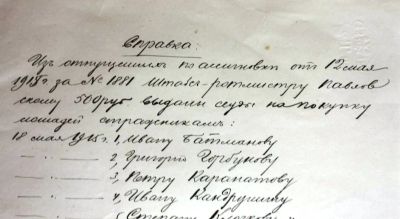 Справка:
Изъ отпущенныхъ по ассигновки отъ 12 мая
1915 г. за № 1881 Штабсъ-ротмистру Павлов
скому 500 руб. выданы ссуды на покупку
лошадей стражникамъ:
18 мая 1915 г. 1, Ивану Батманову
2, Григорію Горбунову
3, Петру Каратаеву
4, Ивану
5, Степану